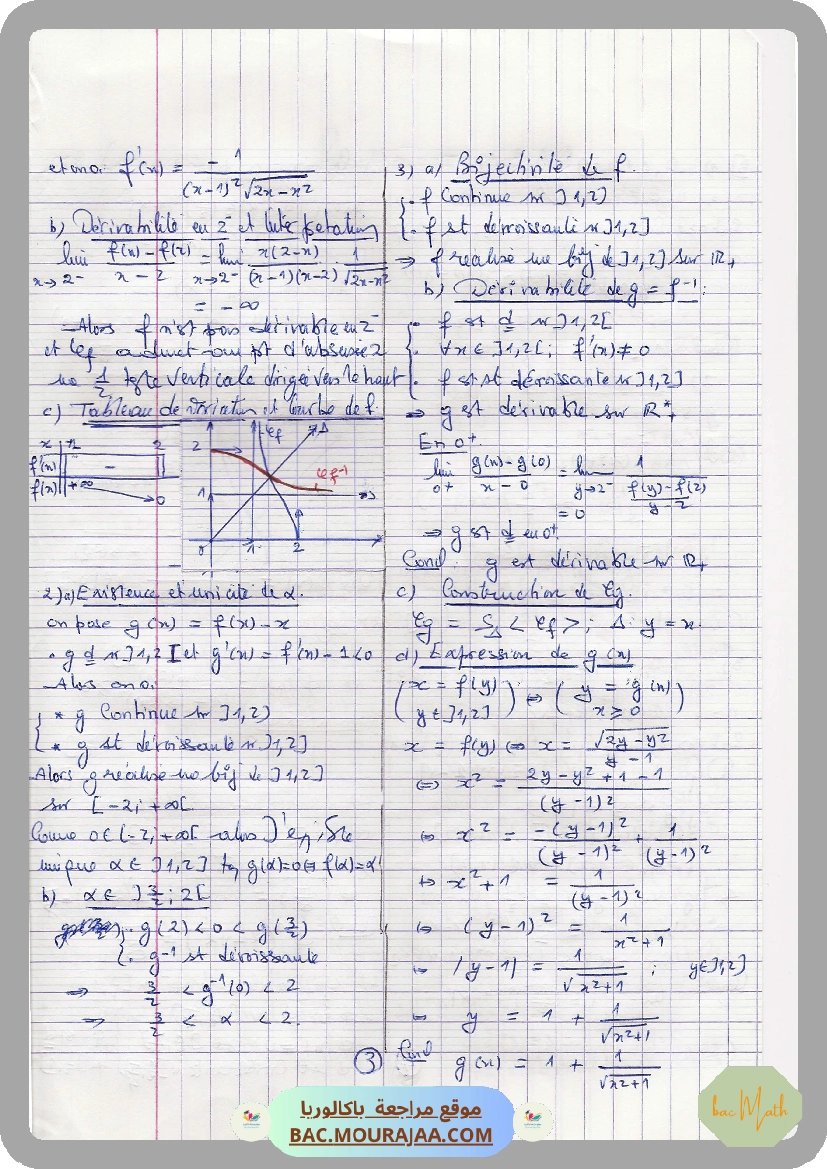 et on a: f'(x) = -1 / ((x-1)² √(2x-x²))
b) Dérivabilité en 2⁻ et Interprétation
lim x→2⁻ (f(x) - f(2)) / (x - 2) = lim x→2⁻ x(2-x) / ((x-1)(x-2)) · 1/√(2x-x²)
= -∞
Alors f n'est pas dérivable en 2⁻
et ζf admet au pt d'abscisse 2
une 1/2 tgte verticale dirigée vers le haut
c) Tableau de variation et courbe de f.
x | 1 2
f'(x) | -
f(x) | +∞ 0
ζf Δ
2
ζf⁻¹
1
0 1 2
2) a) Existence et unicité de α.
on pose g(x) = f(x) - x
. g d sur ]1,2[ et g'(x) = f'(x) - 1 < 0
Alors on a:
* g Continue sur ]1,2]
* g st décroissante sur ]1,2]
Alors g réalise une bij de ]1,2]
sur [-2, +∞[.
Comme 0 ∈ [-2, +∞[ alors
unique α ∈ ]1,2] tq g(α)=0 ⇔ f(α)=α
b) α ∈ ]3/2 ; 2[
. g(2) < 0 < g(3/2)
. g⁻¹ st décroissante
⇒ 3/2 < g⁻¹(0) < 2
⇒ 3/2 < α < 2.
3) a) Bijectivité de f.
. f Continue sur ]1,2]
. f st décroissante sur ]1,2]
⇒ f réalise une bij de ]1,2] sur ℝ₊
b) Dérivabilité de g = f⁻¹:
. f est d sur ]1,2[
. ∀x ∈ ]1,2[ ; f'(x) ≠ 0
. f est st décroissante sur ]1,2]
⇒ g est dérivable sur ℝ*₊
En 0⁺.
lim 0⁺ (g(x) - g(0)) / (x - 0) = lim y→2⁻ 1 / ((f(y) - f(2)) / (y - 2))
= 0
⇒ g est d en 0⁺.
Concl. g est dérivable sur ℝ₊
c) Construction de ζg.
ζg = S_Δ < ζf > ; Δ: y = x.
d) Expression de g(x)
(x = f(y) ⇔ (y = g(x)
y ∈ ]1,2]) x ≥ 0)
x = f(y) ⇔ x = √(2y - y²) / (y - 1)
⇔ x² = (2y - y² + 1 - 1) / (y - 1)²
⇔ x² = -(y - 1)² / (y - 1)² + 1 / (y - 1)²
⇔ x² + 1 = 1 / (y - 1)²
⇔ (y - 1)² = 1 / (x² + 1)
⇔ |y - 1| = 1 / √(x² + 1) ; y ∈ ]1,2]
⇔ y = 1 + 1 / √(x² + 1)
Concl g(x) = 1 + 1 / √(x² + 1)
3
موقع مراجعة باكالوريا
BAC.MOURAJAA.COM
bac Math